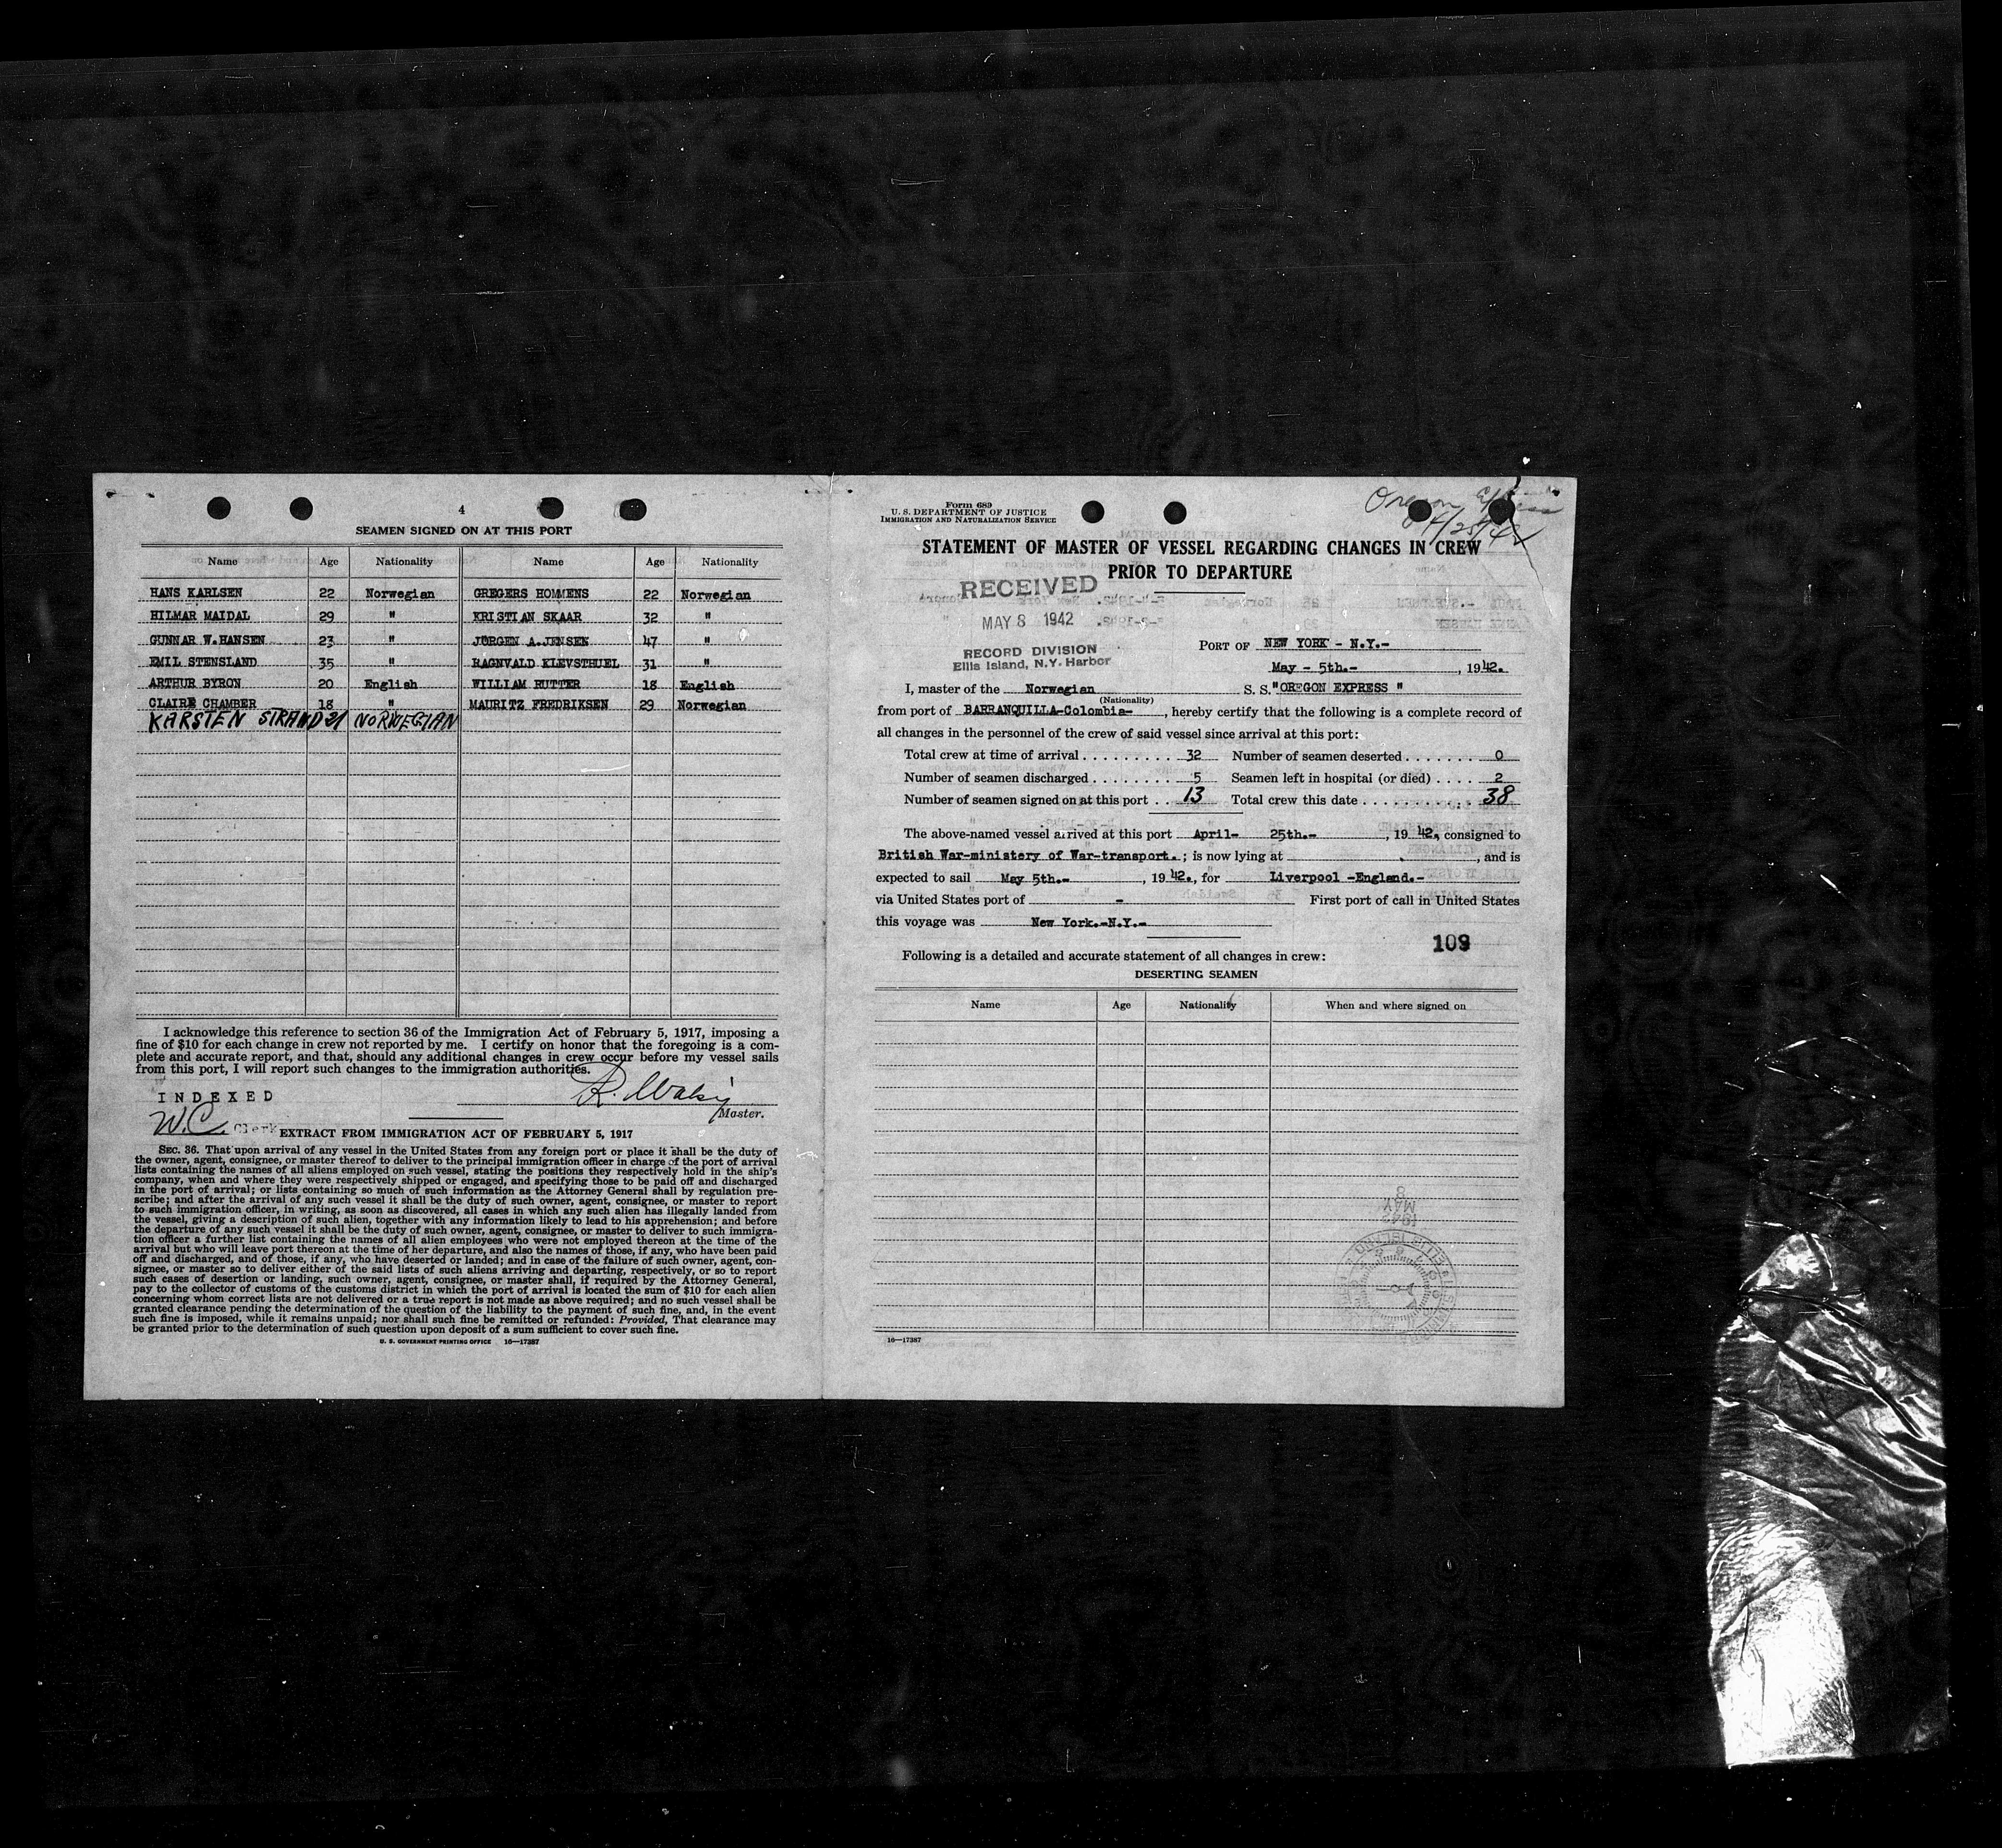 4
SEAMEN SIGNED ON AT THIS PORT
Name Age Nationality Name Age Nationality
HANS KARLSEN 22 Norwegian GREGERS HOMMENS 22 Norwegian
HILMAR MAIDAL 29 " KRISTIAN SKAAR 32 "
GUNNAR W.HANSEN 23 " JØRGEN A.JENSEN 47 "
EMIL STENSLAND 35 " RAGNVALD KLEVSTHUEL 31 "
ARTHUR BYRON 20 English WILLIAM RUTTER 18 English
CLAIRE CHAMBER 18 " MAURITZ FREDRIKSEN 29 Norwegian
KARSTEN STRAND 21 NORWEGIAN
I acknowledge this reference to section 36 of the Immigration Act of February 5, 1917, imposing a
fine of $10 for each change in crew not reported by me. I certify on honor that the foregoing is a com-
plete and accurate report, and that, should any additional changes in crew occur before my vessel sails
from this port, I will report such changes to the immigration authorities.
INDEXED
Master.
W.C. Clerk
EXTRACT FROM IMMIGRATION ACT OF FEBRUARY 5, 1917
SEC. 36. That upon arrival of any vessel in the United States from any foreign port or place it shall be the duty of
the owner, agent, consignee, or master thereof to deliver to the principal immigration officer in charge of the port of arrival
lists containing the names of all aliens employed on such vessel, stating the positions they respectively hold in the ship's
company, when and where they were respectively shipped or engaged, and specifying those to be paid off and discharged
in the port of arrival; or lists containing so much of such information as the Attorney General shall by regulation pre-
scribe; and after the arrival of any such vessel it shall be the duty of such owner, agent, consignee, or master to report
to such immigration officer, in writing, as soon as discovered, all cases in which any such alien has illegally landed from
the vessel, giving a description of such alien, together with any information likely to lead to his apprehension; and before
the departure of any such vessel it shall be the duty of such owner, agent, consignee, or master to deliver to such immigra-
tion officer a further list containing the names of all alien employees who were not employed thereon at the time of the
arrival but who will leave port thereon at the time of her departure, and also the names of those, if any, who have been paid
off and discharged, and of those, if any, who have deserted or landed; and in case of the failure of such owner, agent, con-
signee, or master so to deliver either of the said lists of such aliens arriving and departing, respectively, or so to report
such cases of desertion or landing, such owner, agent, consignee, or master shall, if required by the Attorney General,
pay to the collector of customs of the customs district in which the port of arrival is located the sum of $10 for each alien
concerning whom correct lists are not delivered or a true report is not made as above required; and no such vessel shall be
granted clearance pending the determination of the question of the liability to the payment of such fine, and, in the event
such fine is imposed, while it remains unpaid; nor shall such fine be remitted or refunded: Provided, That clearance may
be granted prior to the determination of such question upon deposit of a sum sufficient to cover such fine.
U. S. GOVERNMENT PRINTING OFFICE 16—17387
Form 689
U. S. DEPARTMENT OF JUSTICE
IMMIGRATION AND NATURALIZATION SERVICE
Oregon Express
4/25/42
STATEMENT OF MASTER OF VESSEL REGARDING CHANGES IN CREW
PRIOR TO DEPARTURE
RECEIVED
MAY 8 1942
RECORD DIVISION
Ellis Island, N.Y. Harbor
PORT OF NEW YORK - N.Y.-
May - 5th.- , 1942.
I, master of the Norwegian S. S. "OREGON EXPRESS "
(Nationality)
from port of BARRANQUILLA-Colombia- , hereby certify that the following is a complete record of
all changes in the personnel of the crew of said vessel since arrival at this port:
Total crew at time of arrival . . . . . . . . . . 32 Number of seamen deserted . . . . . . . 0
Number of seamen discharged . . . . . . . . 5 Seamen left in hospital (or died) . . . . 2
Number of seamen signed on at this port . . 13 Total crew this date . . . . . . . . . . . . 38
The above-named vessel arrived at this port April- 25th.- , 19 42, consigned to
British War-ministery of War-transport. ; is now lying at , and is
expected to sail May 5th.- , 19 42., for Liverpool -England.-
via United States port of - First port of call in United States
this voyage was New York.-N.Y.-
109
Following is a detailed and accurate statement of all changes in crew:
DESERTING SEAMEN
Name Age Nationality When and where signed on
16—17387